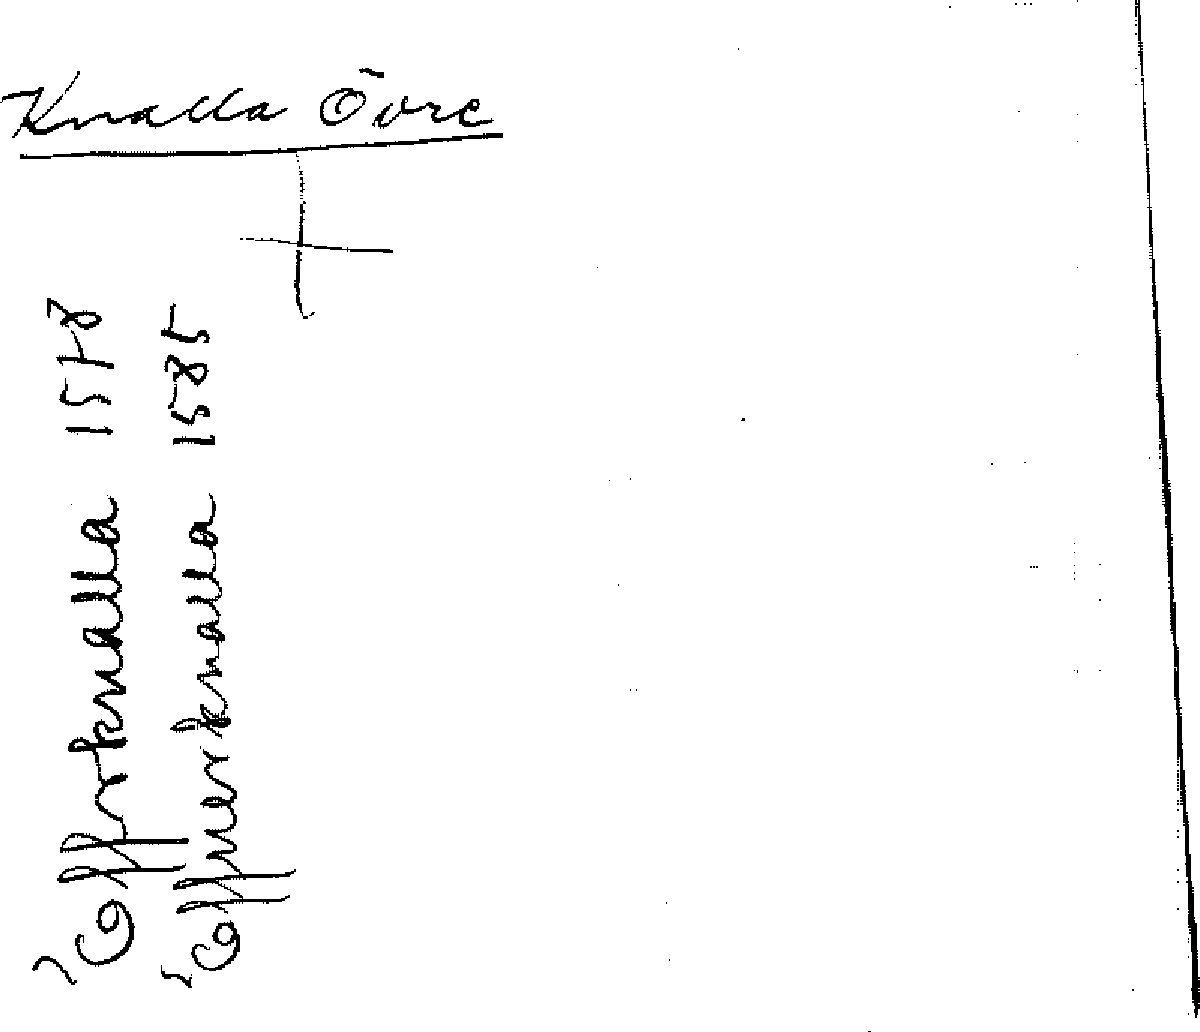 Knalla Övre
Öffrknalla 1578
Öffuerknalla 1585